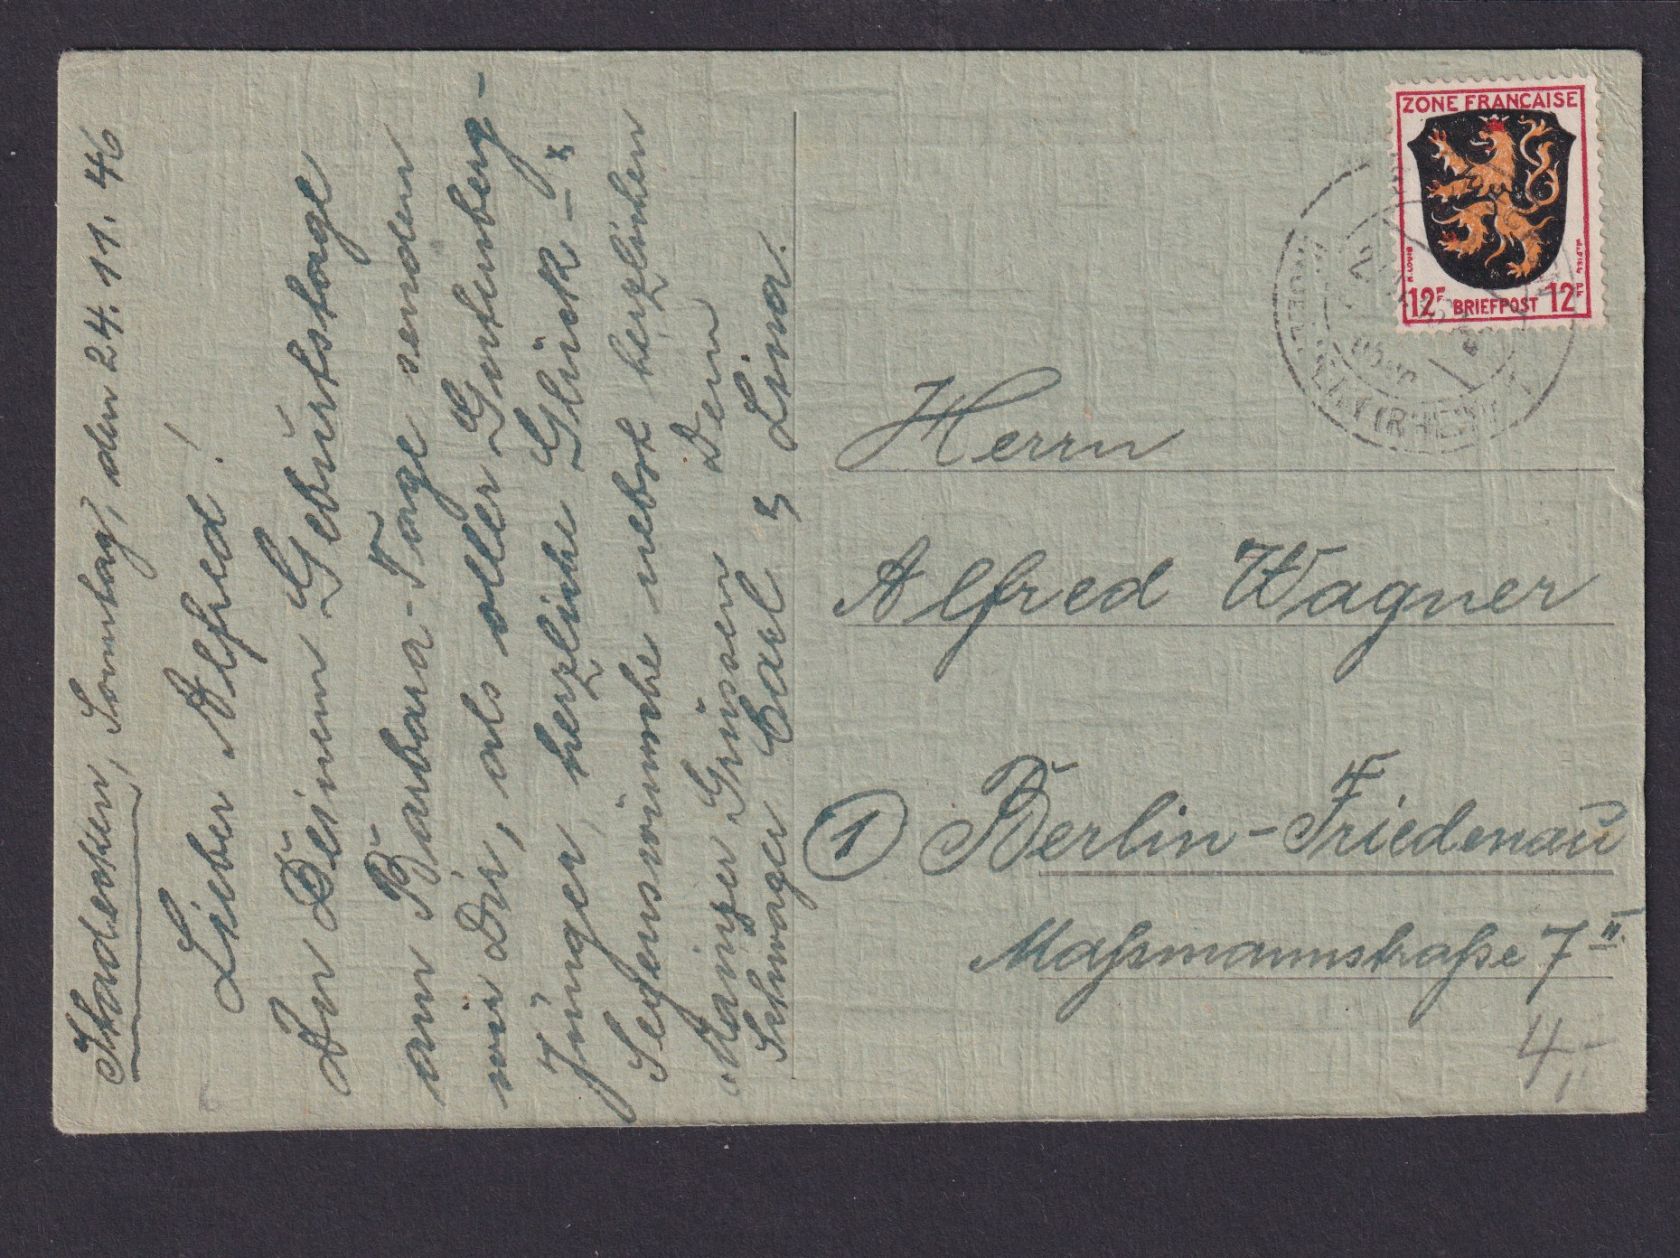 Stadecken, Sonntag, den 24.11.46
Lieber Alfred!
Zu Deinem Geburtstage
am Barbara-Tage senden
wir Dir, als oller Gutenberg-
Jünger, herzliche Glück- &
Segenswünsche nebst herzlichen
Mainzer Grüssen Dein
Schwager Carl & Lina.
ZONE FRANÇAISE
12F BRIEFPOST 12F
Herrn
Alfred Wagner
① Berlin-Friedenau
Maßmannstraße 7 II.
4,-